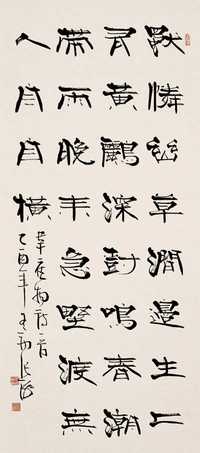 獨憐幽草澗邊生上
有黃鸝深樹鳴春潮
帶雨晚來急野渡無
人舟自橫
韋應物詩一首
乙酉年